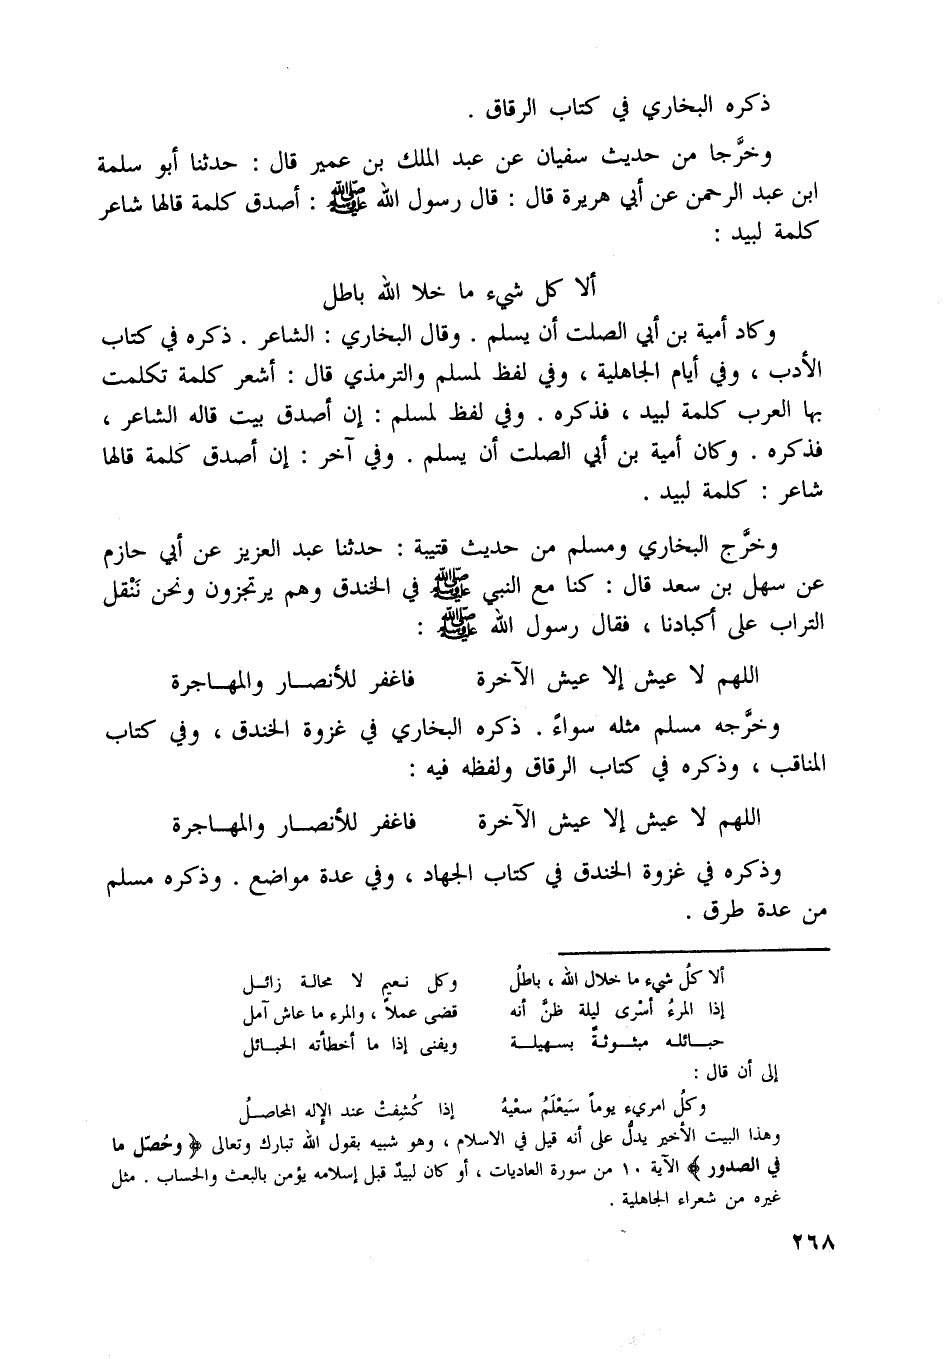 ذكره البخاري في كتاب الرقاق .
وخرَّجا من حديث سفيان عن عبد الملك بن عمير قال : حدثنا أبو سلمة
ابن عبد الرحمن عن أبي هريرة قال : قال رسول الله ﷺ : أصدق كلمة قالها شاعر
كلمة لبيد :
ألا كل شيء ما خلا الله باطل
وكاد أمية بن أبي الصلت أن يسلم . وقال البخاري : الشاعر . ذكره في كتاب
الأدب ، وفي أيام الجاهلية ، وفي لفظ لمسلم والترمذي قال : أشعر كلمة تكلمت
بها العرب كلمة لبيد ، فذكره . وفي لفظ لمسلم : إن أصدق بيت قاله الشاعر ،
فذكره . وكان أمية بن أبي الصلت أن يسلم . وفي آخر : إن أصدق كلمة قالها
شاعر : كلمة لبيد .
وخرَّج البخاري ومسلم من حديث قتيبة : حدثنا عبد العزيز عن أبي حازم
عن سهل بن سعد قال : كنا مع النبي ﷺ في الخندق وهم يرتجزون ونحن نَنْقل
التراب على أكبادنا ، فقال رسول الله ﷺ :
اللهم لا عيش إلا عيش الآخرة فاغفر للأنصـار والمهـاجرة
وخرَّجه مسلم مثله سواءً . ذكره البخاري في غزوة الخندق ، وفي كتاب
المناقب ، وذكره في كتاب الرقاق ولفظه فيه :
اللهم لا عيش إلا عيش الآخرة فاغفر للأنصـار والمهـاجرة
وذكره في غزوة الخندق في كتاب الجهاد ، وفي عدة مواضع . وذكره مسلم
من عدة طرق .
ألا كلُ شيء ما خلال الله ، باطلُ وكل نعيم لا محالة زائـل
إذا المرءُ أسْرى ليلة ظنَّ أنه قضى عملاً ، والمرء ما عاش آمل
حبـائله مبثـوثةٌ بسهيلـة ويفنى إذا ما أخطأته الحبـائل
إلى أن قال :
وكلُ امريء يوماً سَيَعْلَمُ سعْيهُ إذا كُشِفتْ عند الإله المحاصلُ
وهذا البيت الأخير يدلُّ على أنه قيل في الاسلام ، وهو شبيه بقول الله تبارك وتعالى ﴿ وحُصّل ما
في الصدور ﴾ الآية ١٠ من سورة العاديات ، أو كان لبيدٌ قبل إسلامه يؤمن بالبعث والحساب . مثل
غيره من شعراء الجاهلية .
٢٦٨